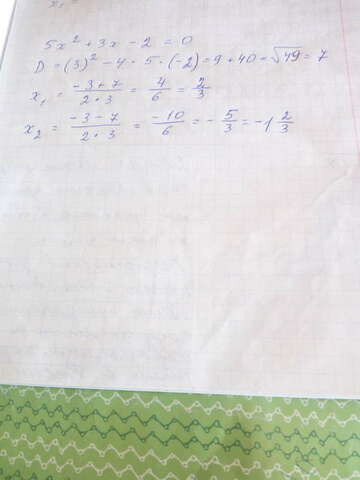 x₁ =
5x² + 3x - 2 = 0
D = (3)² - 4 · 5 · (-2) = 9 + 40 = √49 = 7
x₁ = (-3+7)/(2·3) = 4/6 = 2/3
x₂ = (-3-7)/(2·3) = -10/6 = -5/3 = -1 2/3